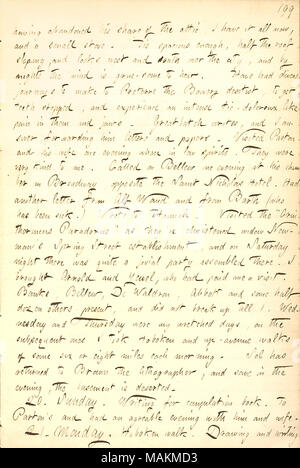 199
having abandoned his share of the attic I have it all now,
and a small stove. Tis spacious enough, half the roof
sloping and looks west and south over the city, and by
nights the wind is grue-some to hear. Have had divers
journeys to make to Portens the Bowery dentist to get
teeth stopped, and experience an intense tic-doloreux like
pain in them and jaws. Breitchuck writes, and I an-
swer forwarding him letters and papers. Visited Parton
and his wife one evening when in low spirits. They were
very kind to me. Called on Bellew one evening at his cham-
ber in Broadway opposite the Saint Nicholas Hotel. Had
another letter from Alf Waud and from Barth (who
has been sick.) Wrote to Hannah. Visited the "Orni-
thorhyncus Paradoxus" as they've christened
man's Spring Street establishment, and on Saturday
night there was quite a jovial party assembled there. I
brought Arnold and Heusel, who had paid me a visit.
Banks, Bellew, De Waldron, Abbot and some half
dozen others present and did not break up till 1. Wed-
nesday and Thursday were my wretched days, on the
subsequent ones I took Hoboken and up-avenue walks
of some six or eight miles each morning. Sol has
returned to Brown the lithographer, and save in the
evening the basement is deserted.
20. Sunday. Writing for compilation book. To
Parton's and had an agreeable evening with him and wife.
21. Monday. Hoboken walk. Drawing and writing
alamy
Image ID: MAKMD3
www.alamy.com